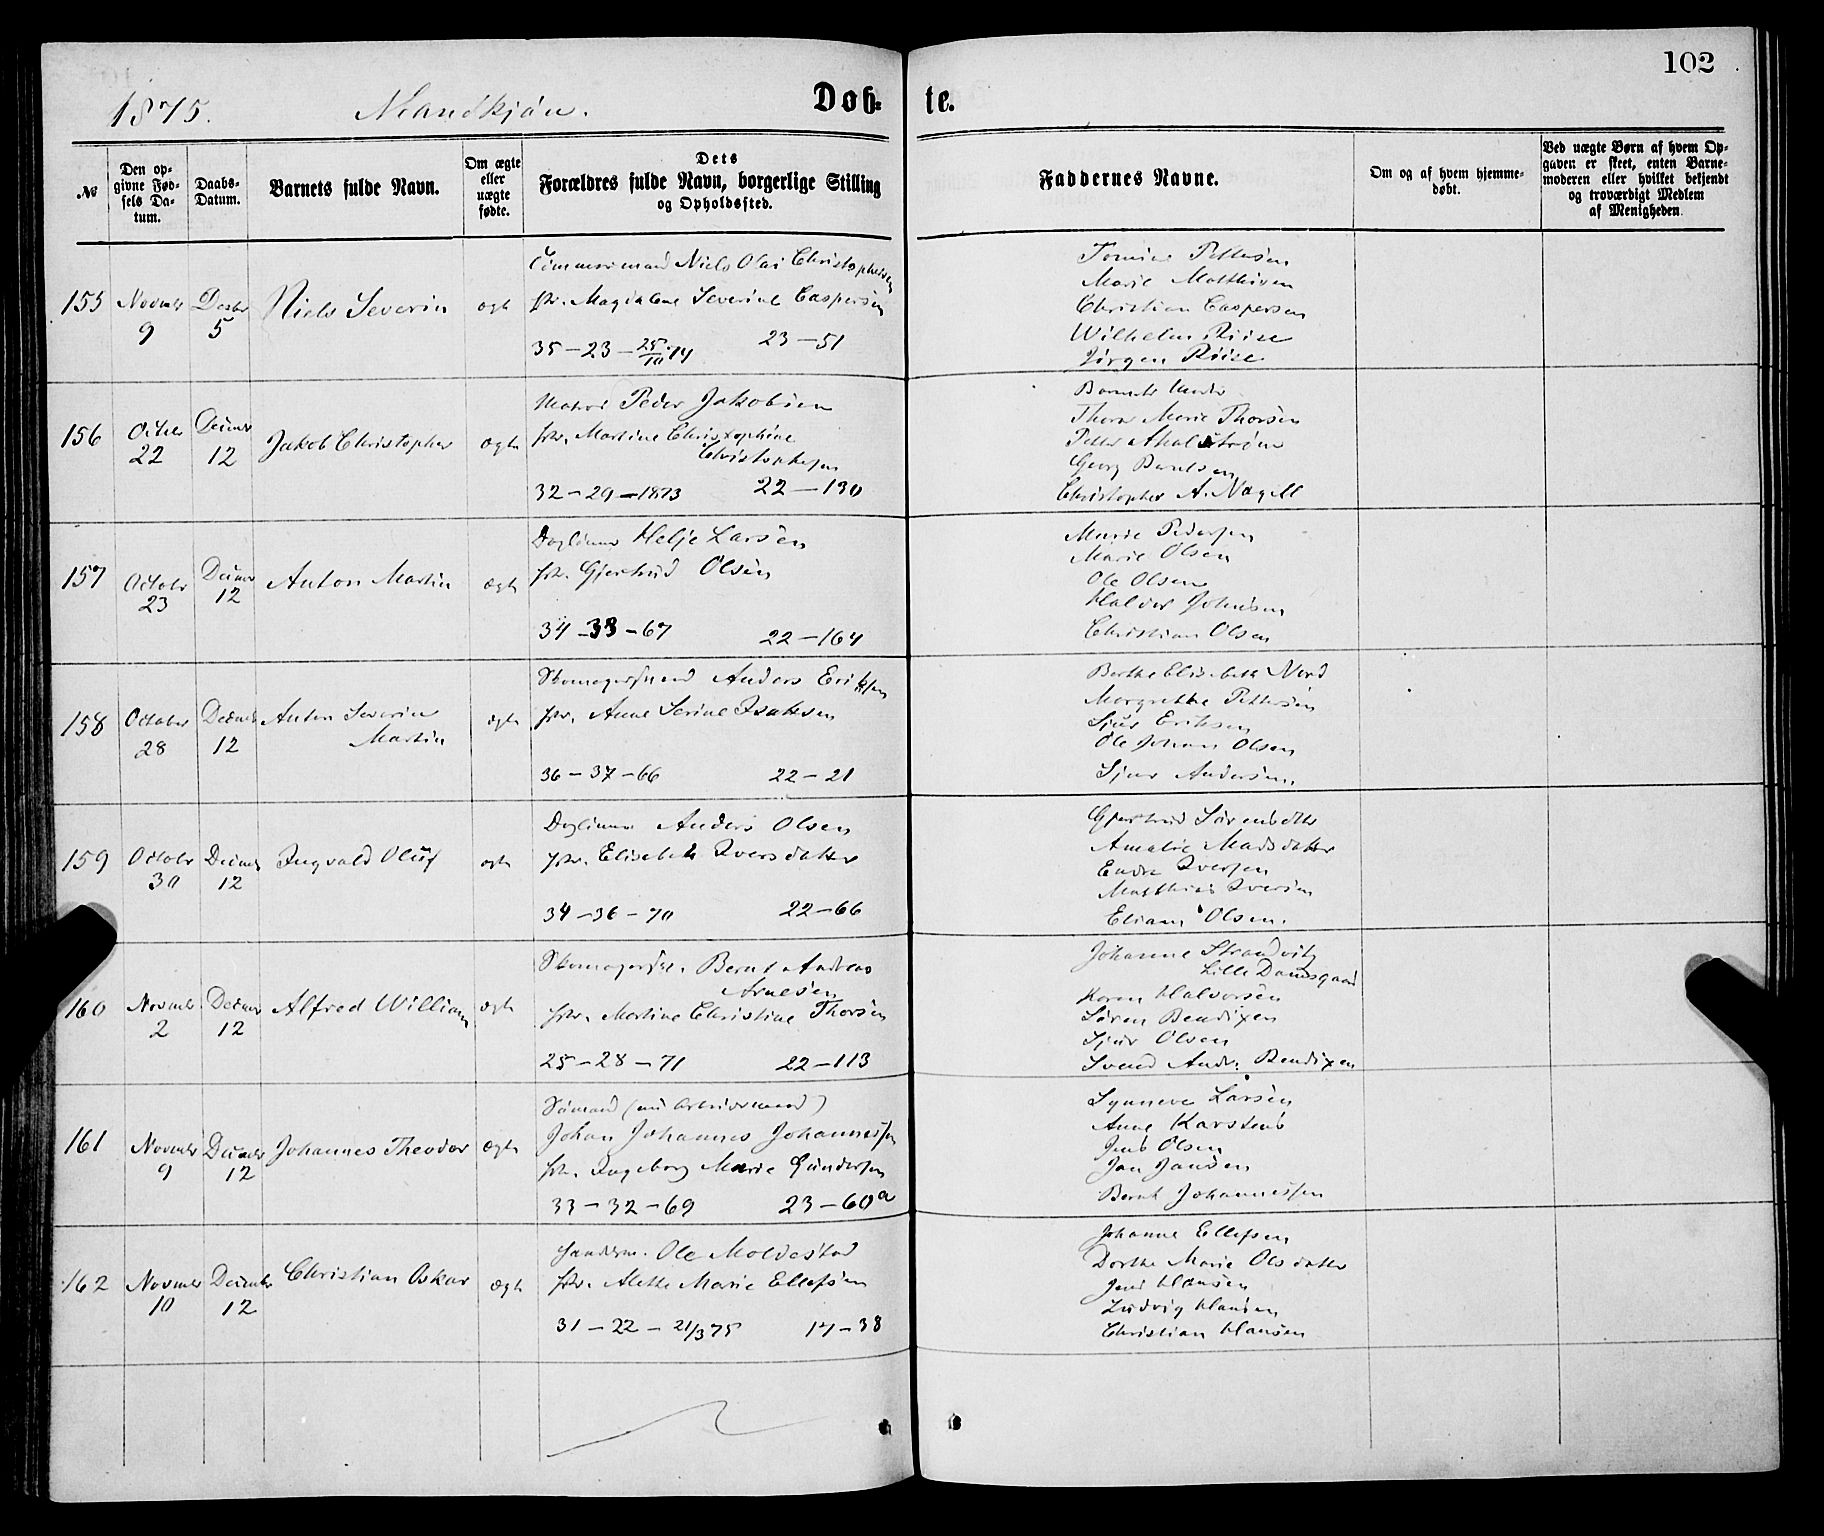 102
1875. Mandkjön. Döb- te.
№
Den op-
givne Fød-
sels Da-
tum.
Daabs-
Datum.
Barnets fulde Navn.
Om ægte
eller
uægte
fødte.
Dets
Forældres fulde Navn, borgerlige Stilling
og Opholdssted.
Faddernes Navne.
Om og af hvem hjemme-
døbt.
Ved uægte Børn af hvem Op-
gaven er skeet, enten Barne-
moderen eller hvilket bekjendt
og troværdigt Medlem
af Menigheden.
155 Novmbr 9 Decbr 5 Niels Severin ægte
Tömmermand Niels Olai Christophersen
Magdalene Severine Caspersen
35-23-25/10 74 23-51
Pettersen
Marie Matthisen
Christian Caspersen
Wilhelm Riise
Jørgen Riise
156 Octbr 22 Decmbr 12 Jakob Christopher ægte
Matros Peder Jakobsen
Martine Christophine
Christophersen
32-29-1873 22-130
Barnets Moder
Thora Marie Thorsen
Georg Berntsen
Christopher A. Nagell
157 Octobr 23 Decmbr 12 Anton Martin ægte
Daglönner Helje Larsen
Gjertrud Olsen
34-33-67 22-164
Marie Pedersen
Marie Olsen
Ole Olsen
Halvor Johnsen
Christian Olsen
158 October 28 Decmbr 12 Anton Severin
Martin ægte
Skomagersvend Anders Eriksen
Anne Serine Isaksen
36-37-66 22-21
Berthe Elisabeth Nord
Margrethe Pettersen
Sjur Eriksen
Ole Johan Olsen
Sjur Andersen
159 Octobr 30 Decmbr 12 Ingvald Oluf ægte
Daglönner Anders Olsen
Elisabeth Iversdatter
34-36-70 22-66
Gjertrud Sørensdtter
Amalie Madsdatter
Endre Iversen
Matthias Iversen
Olsen.
160 Novmbr 2 Decmbr 12 Alfred William ægte
Bernt Andreas
Arnesen
Martine Christine Thorsen
25-28-71 22-113
Johanne Strandvik
Lille Damsgaard
Karen Halvorsen
Søren Bendixen
Sjur Olsen
Svend Andr. Bendixen
161 Novmbr 9 Decmbr 12 Johannes Theodor ægte
Sömand (nu Arbeidsmand)
Johan Johannes Johannessen
Ingeborg Marie Gundersen
33-32-69 23-60a
Synneve Larsen
Anne Karstens
Jens Olsen
Jan Jansen
Bernt Johannessen
162 Novmbr 10 Decmbr 12 Christian Oskar ægte
Ole Moldestad
Alette Marie Ellefsen
31-22-21/3 75 17-38
Johanne Ellefsen
Dorthe Marie Olsdatter
Jens Hansen
Ludvig Hansen
Christian Hansen